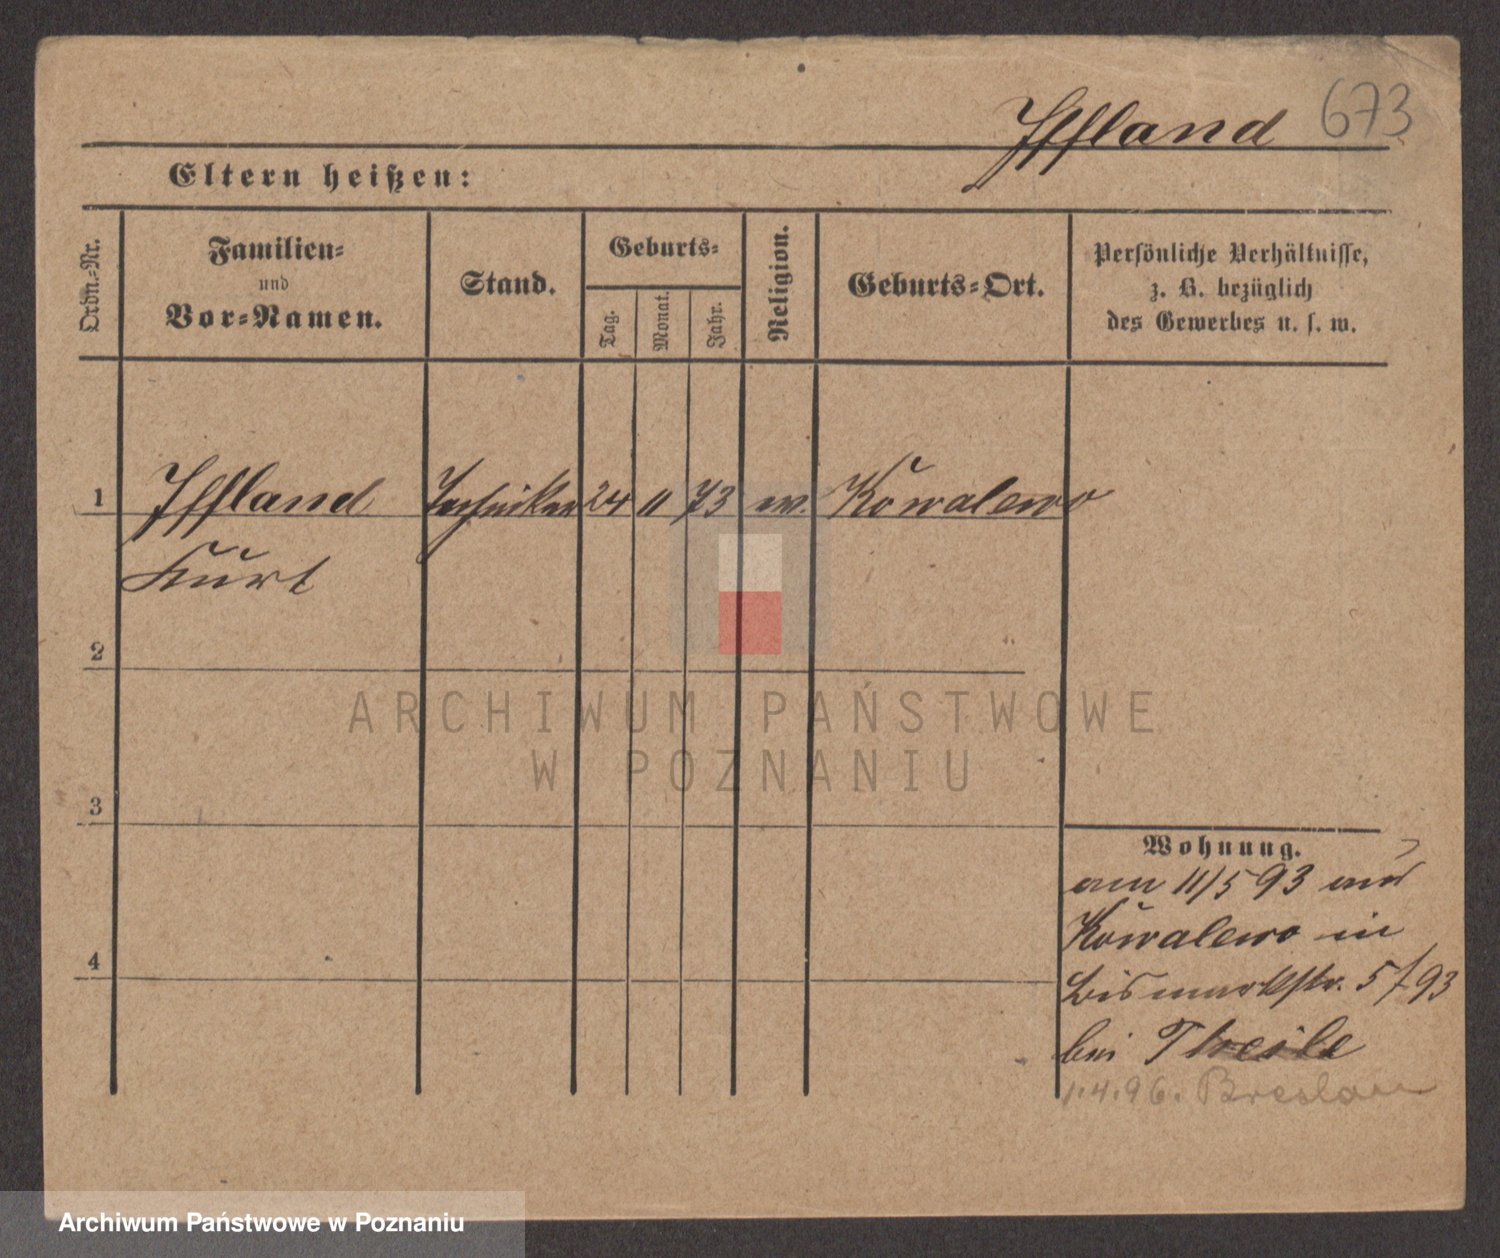 Iffland 673
Eltern heißen:
Ordn.-Nr.
Familien-
und
Vor-Namen.
Stand.
Geburts-
Tag.
Monat.
Jahr.
Religion.
Geburts-Ort.
Persönliche Verhältnisse,
z. B. bezüglich
des Gewerbes u. s. w.
1 Iffland Techniker 24 11 73 ev. Kowalewo
Kurt
2
3
4
Wohnung.
am 11/5 93 aus
Kowalewo in
Bismarckstr. 5 f 93
bei Theile
1.4.96. Breslau
ARCHIWUM PAŃSTWOWE
W POZNANIU
Archiwum Państwowe w Poznaniu